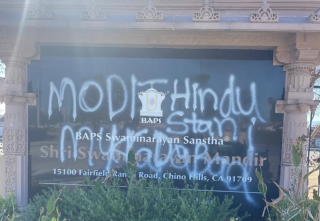 MODI Hindu
Stan
BAPS
BAPS Swaminarayan Sanstha
Shri Swaminarayan Mandir
15100 Fairfield Ranch Road, Chino Hills, CA 91769